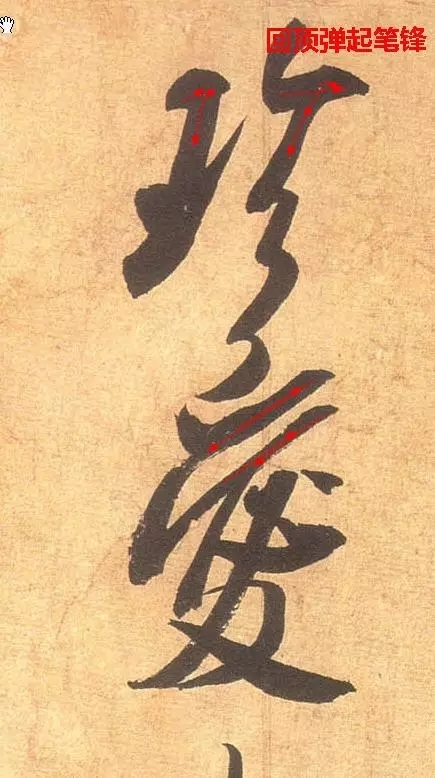 回顶弹起笔锋
珍
愛